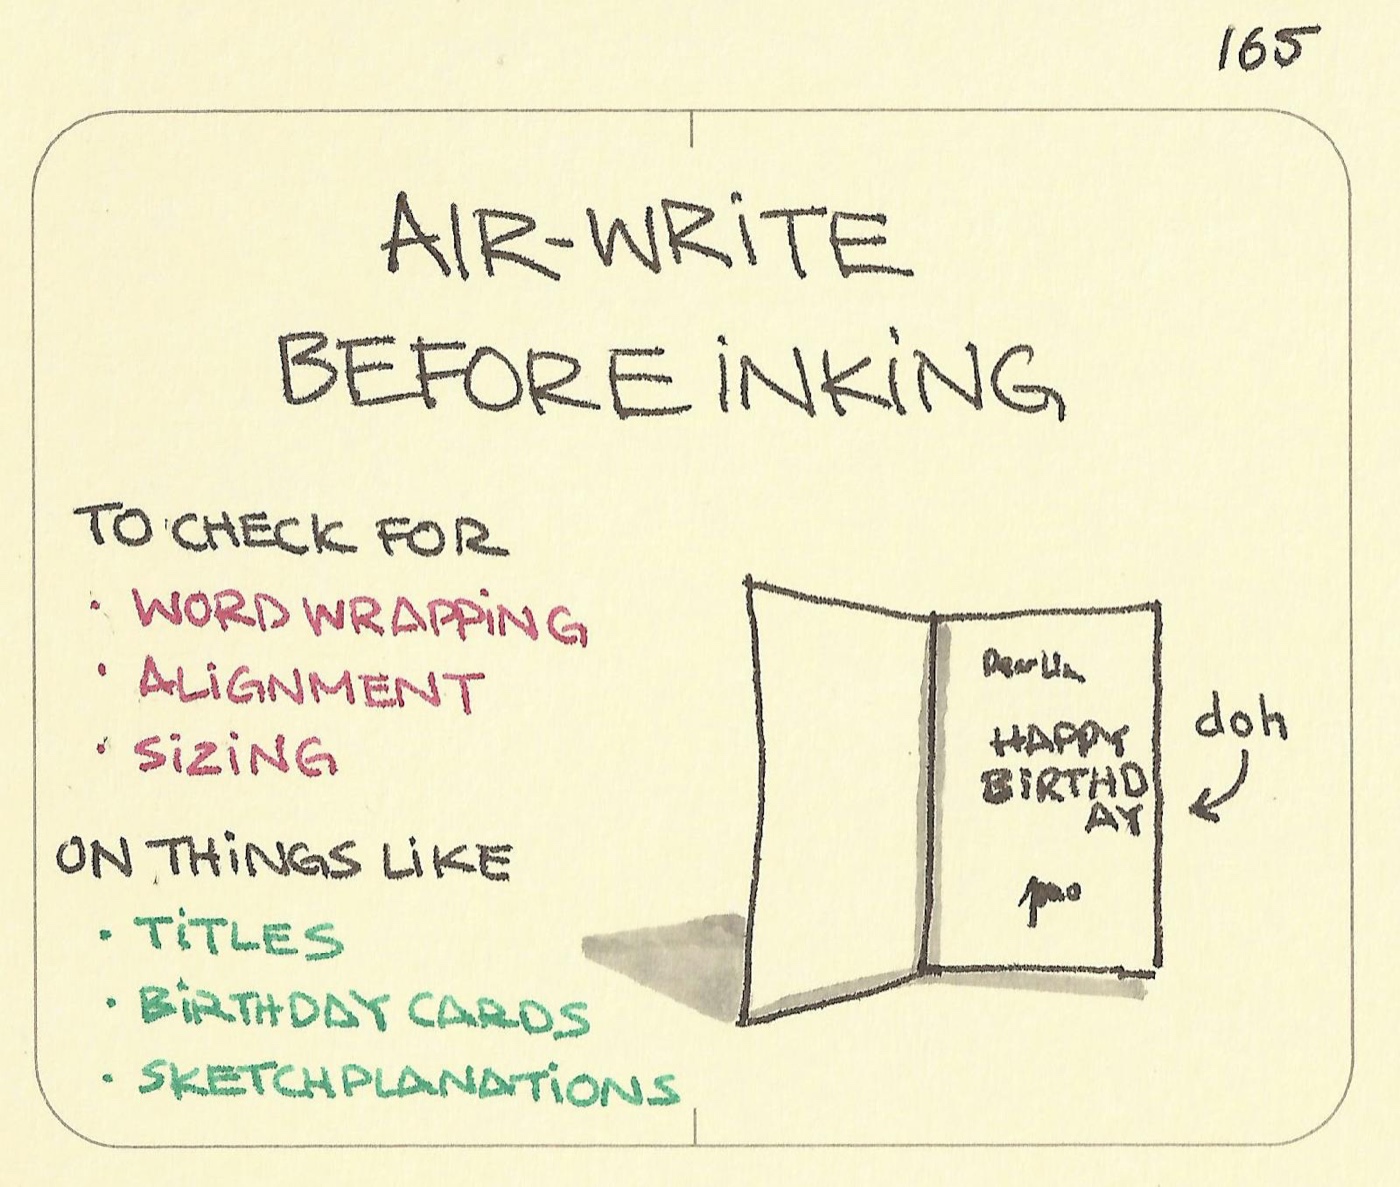 165
AIR-WRITE
BEFORE INKING
TO CHECK FOR
• WORD WRAPPING
• ALIGNMENT
• SIZING
ON THINGS LIKE
• TITLES
• BIRTHDAY CARDS
• SKETCHPLANATIONS
Dear
HAPPY
BIRTHD
AY
doh